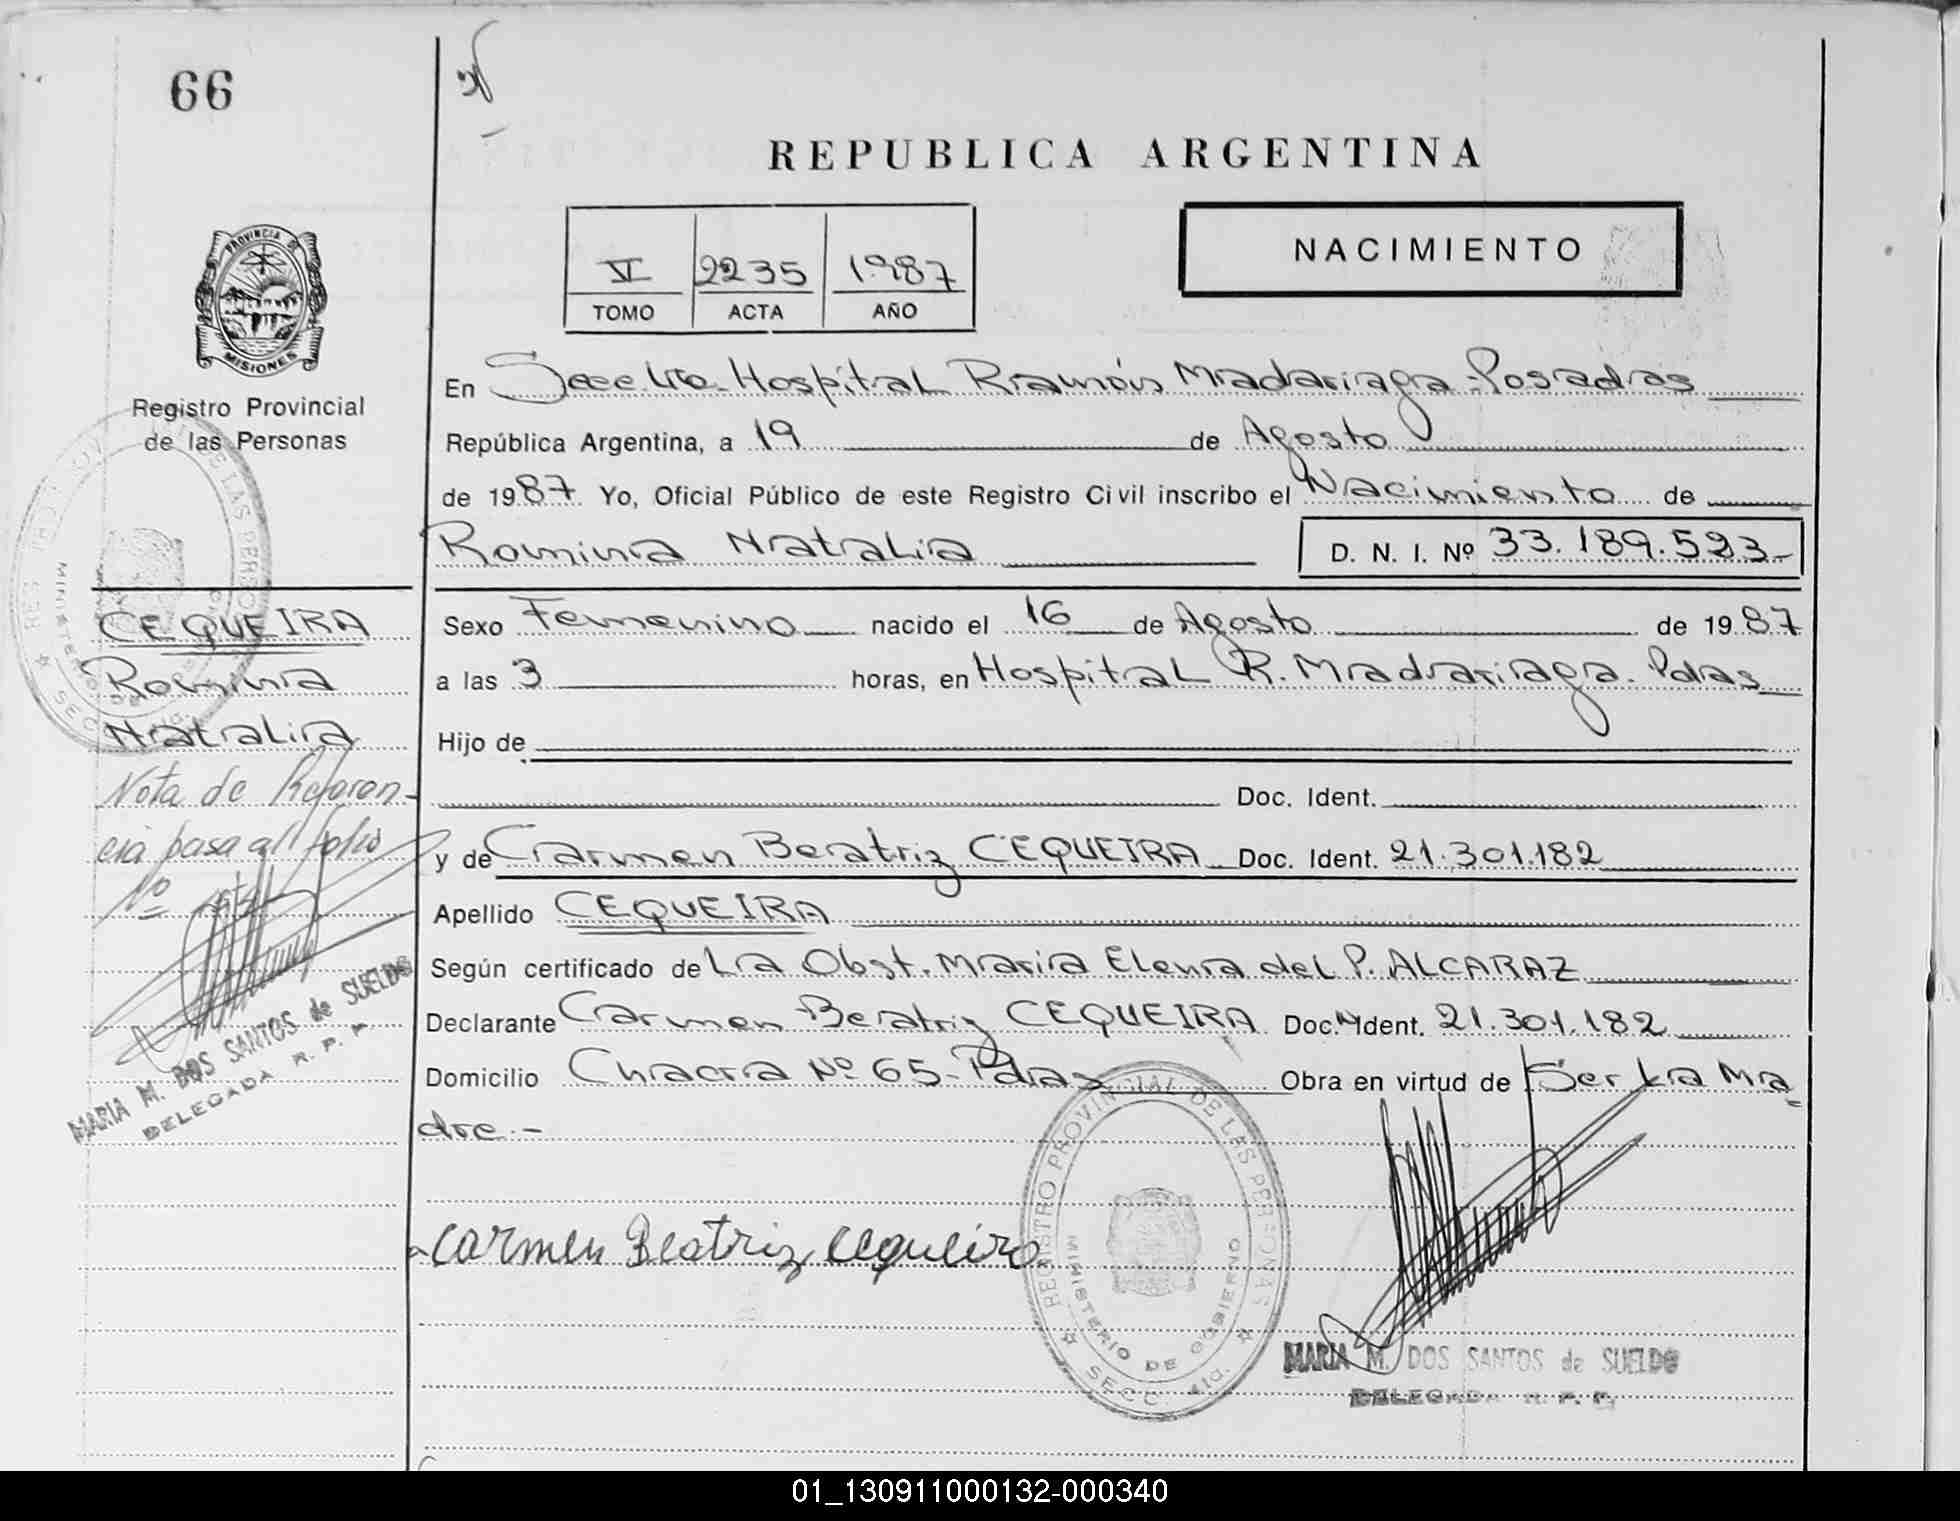 66
REPUBLICA ARGENTINA
PROVINCIA DE
MISIONES
Registro Provincial
de las Personas
VI 2235 1987
TOMO ACTA AÑO
NACIMIENTO
En Secc. 4ta. Hospital Ramón Madariaga - Posadas
República Argentina, a 19 de Agosto
de 1987. Yo, Oficial Público de este Registro Civil inscribo el Nacimiento de
Romina Natalia D. N. I. Nº 33.189.523-
CEQUEIRA
Romina
Natalia
Nota de Referen-
cia pasa al folio
Nº
MARIA M. DOS SANTOS de SUELDO
DELEGADA R. P. P.
Sexo Femenino nacido el 16 de Agosto de 1987
a las 3 horas, en Hospital R. Madariaga. Pdas
Hijo de
Doc. Ident.
y de Carmen Beatriz CEQUEIRA Doc. Ident. 21.301.182
Apellido CEQUEIRA
Según certificado de La Obst. Maria Elena del P. ALCARAZ
Declarante Carmen Beatriz CEQUEIRA Doc. Ident. 21.301.182
Domicilio Chacra Nº 65- Pdas Obra en virtud de Ser La Ma
dre.-
Carmen Beatriz Cequeira
REGISTRO PROVINCIAL DE LAS PERSONAS
MINISTERIO DE GOBIERNO
SECC. 4ta.
MARIA M. DOS SANTOS de SUELDO
DELEGADA R. P. P.
01_130911000132-000340